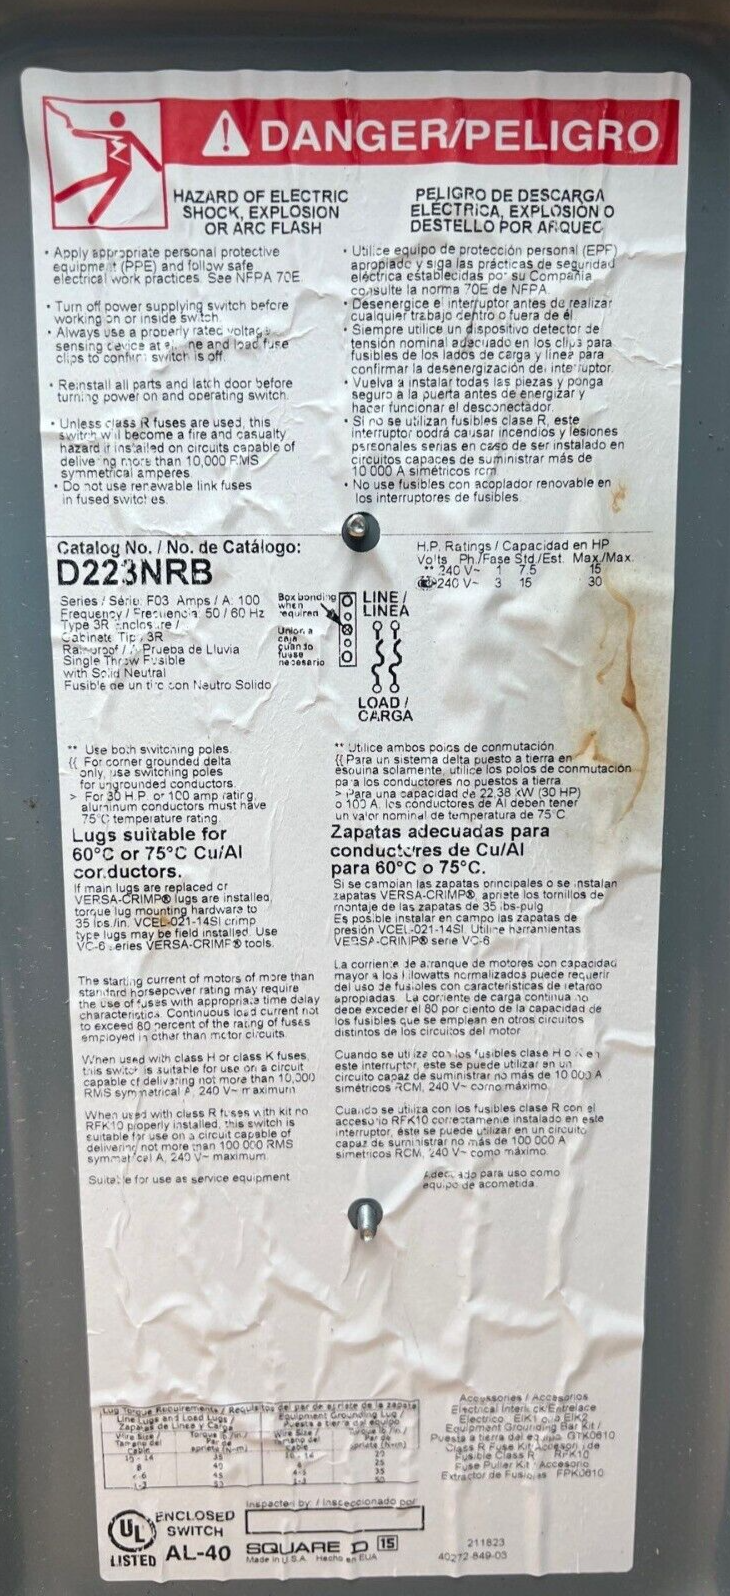 DANGER/PELIGRO
HAZARD OF ELECTRIC
SHOCK, EXPLOSION
OR ARC FLASH
• Apply appropriate personal protective
equipment (PPE) and follow safe
electrical work practices. See NFPA 70E.
• Turn off power supplying switch before
working on or inside switch.
• Always use a properly rated voltage
sensing device at all line and load fuse
clips to confirm switch is off.
• Reinstall all parts and latch door before
turning power on and operating switch.
• Unless class R fuses are used, this
switch will become a fire and casualty
hazard if installed on circuits capable of
delivering more than 10,000 RMS
symmetrical amperes.
• Do not use renewable link fuses
in fused switches.
PELIGRO DE DESCARGA
ELÉCTRICA, EXPLOSIÓN O
DESTELLO POR ARQUEO
• Utilice equipo de protección personal (EPP)
apropiado y siga las prácticas de seguridad
eléctrica establecidas por su Compañía
consulte la norma 70E de NFPA.
• Desenergice el interruptor antes de realizar
cualquier trabajo dentro o fuera de él.
• Siempre utilice un dispositivo detector de
tensión nominal adecuado en los clips para
fusibles de los lados de carga y línea para
confirmar la desenergización del interruptor.
• Vuelva a instalar todas las piezas y ponga
seguro a la puerta antes de energizar y
hacer funcionar el desconectador.
• Si no se utilizan fusibles clase R, este
interruptor podrá causar incendios y lesiones
personales serias en caso de ser instalado en
circuitos capaces de suministrar más de
10 000 A simétricos rcm.
• No use fusibles con acoplador renovable en
los interruptores de fusibles.
Catalog No. / No. de Catálogo:
D223NRB
Series / Série: F03 Amps / A: 100
Frequency / Frecuencia: 50 / 60 Hz
Type 3R Enclosure /
Gabinete Tipo 3R
Rainproof / A Prueba de Lluvia
Single Throw Fusible
with Solid Neutral
Fusible de un tiro con Neutro Solido
Box bonding
when
required
Union a
caja
cuando
fuese
necesario
LINE /
LINEA
LOAD /
CARGA
H.P. Ratings / Capacidad en HP
Volts Ph./Fase Std./Est. Max./Max.
** 240 V~ 1 7.5 15
240 V~ 3 15 30
** Use both switching poles.
{{ For corner grounded delta
only, use switching poles
for ungrounded conductors.
> For 30 H.P. or 100 amp rating,
aluminum conductors must have
75°C temperature rating.
Lugs suitable for
60°C or 75°C Cu/Al
conductors.
If main lugs are replaced or
VERSA-CRIMP® lugs are installed,
torque lug mounting hardware to
35 lbs./in. VCEL-021-14SI crimp
type lugs may be field installed. Use
VC-6 series VERSA-CRIMP® tools.
The starting current of motors of more than
standard horsepower rating may require
the use of fuses with appropriate time delay
characteristics. Continuous load current not
to exceed 80 percent of the rating of fuses
employed in other than motor circuits.
When used with class H or class K fuses,
this switch is suitable for use on a circuit
capable of delivering not more than 10,000
RMS symmetrical A, 240 V~ maximum
When used with class R fuses with kit no.
RFK10 properly installed, this switch is
suitable for use on a circuit capable of
delivering not more than 100 000 RMS
symmetrical A, 240 V~ maximum.
Suitable for use as service equipment
** Utilice ambos polos de conmutación
{{ Para un sistema delta puesto a tierra en
esquina solamente, utilice los polos de conmutación
para los conductores no puestos a tierra.
> Para una capacidad de 22,38 kW (30 HP)
o 100 A, los conductores de Al deben tener
un valor nominal de temperatura de 75°C
Zapatas adecuadas para
conductores de Cu/Al
para 60°C o 75°C.
Si se cambian las zapatas principales o se instalan
zapatas VERSA-CRIMP®, apriete los tornillos de
montaje de las zapatas de 35 lbs-pulg
Es posible instalar en campo las zapatas de
presión VCEL-021-14SI. Utilice herramientas
VERSA-CRIMP® serie VC-6
La corriente de arranque de motores con capacidad
mayor a los kilowatts normalizados puede requerir
del uso de fusibles con características de retardo
apropiadas. La corriente de carga continua no
debe exceder el 80 por ciento de la capacidad de
los fusibles que se emplean en otros circuitos
distintos de los circuitos del motor
Cuando se utiliza con los fusibles clase H o K en
este interruptor, este se puede utilizar en un
circuito capaz de suministrar no más de 10 000 A
simétricos RCM, 240 V~ como máximo.
Cuando se utiliza con los fusibles clase R con el
accesorio RFK10 correctamente instalado en este
interruptor, éste se puede utilizar en un circuito
capaz de suministrar no más de 100 000 A
simetricos RCM, 240 V~ como máximo.
Adecuado para uso como
equipo de acometida.
Lug Torque Requirements / Requisitos del par de apriete de la zapata
Line Lugs and Load Lugs /
Zapatas de Linea y Carga
Equipment Grounding Lug /
Puesta a tierra del equipo
Wire Size /
Tamano del
Cable
Par de
apriete (N•m)
Accessories / Accesorios
Electrical Interlock/Entrelace
Electrico EIK1 o a EIK2
Equipment Grounding Bar Kit /
Puesta a tierra del equipo GTK0610
Class R Fuse Kit/Accesorio de
Fusible Class R RFK10
Fuse Puller Kit / Accesorio
Extractor de Fusibles FPK0610
UL
LISTED
ENCLOSED
SWITCH
AL-40
Inspected by: / Inspeccionado por:
SQUARE D 15
Made in U.S.A. Hecho en EUA
211823
40272-849-03